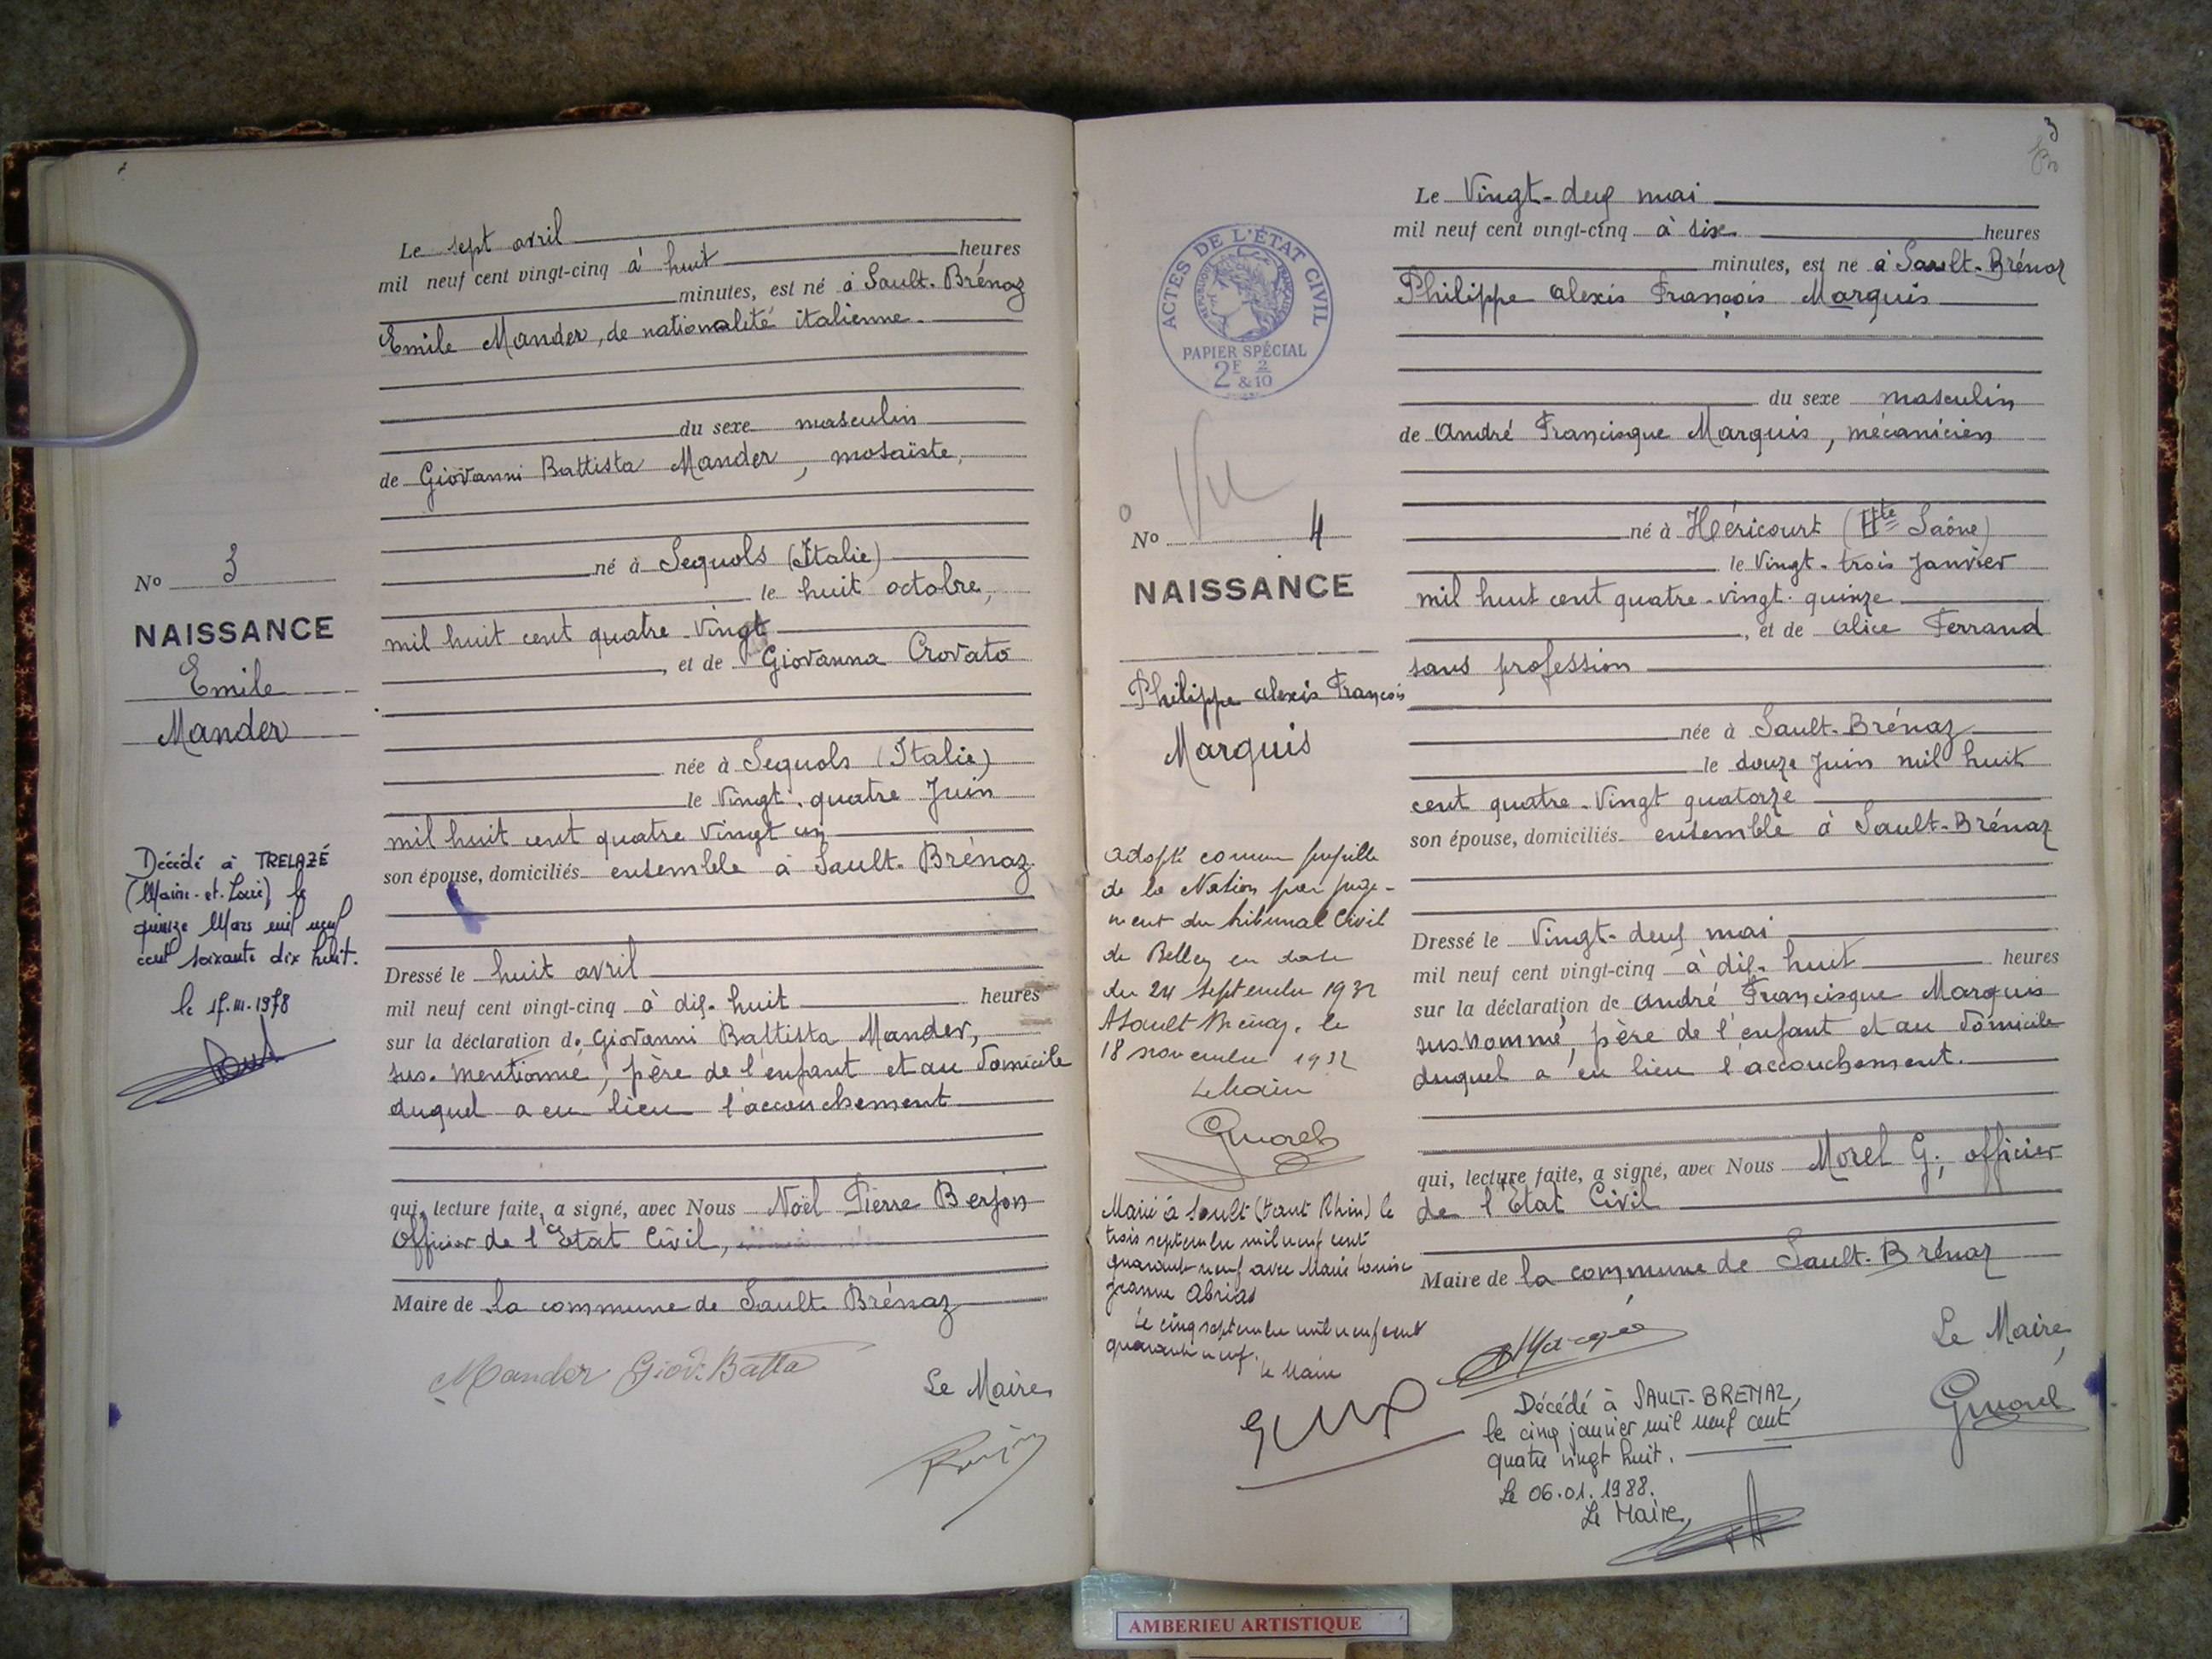 Le sept avril
mil neuf cent vingt-cinq à huit heures
minutes, est né à Sault-Brénaz
Emile Mander, de nationalité italienne.
du sexe masculin
de Giovanni Battista Mander, mosaïste,
né à Sequols (Italie)
le huit octobre,
mil huit cent quatre-vingt
, et de Giovanna Crovato
née à Sequols (Italie)
le vingt-quatre Juin
mil huit cent quatre vingt un
son épouse, domiciliés ensemble à Sault-Brénaz
Dressé le huit avril
mil neuf cent vingt-cinq à dix-huit heures
sur la déclaration de Giovanni Battista Mander,
sus-mentionné, père de l'enfant et au domicile
duquel a eu lieu l'accouchement
qui, lecture faite, a signé, avec Nous Noël Pierre Berjon
Officier de l'Etat Civil,
Maire de la commune de Sault-Brénaz
Mander Giov. Batta
Le Maire
No 3
NAISSANCE
Emile
Mander
Décédé à TRELAZÉ
(Maine-et-Loire) le
quinze Mars mil neuf
cent soixante dix huit.
le 17.III.1978
3
Le Vingt-deux mai
mil neuf cent vingt-cinq à six heures
minutes, est né à Sault-Brénaz
Philippe Alexis François Marquis
du sexe masculin
de André Francisque Marquis, mécanicien
né à Héricourt (Hte Saône)
le Vingt-trois Janvier
mil huit cent quatre-vingt-quinze
, et de Alice Ferrand
sans profession
née à Sault-Brénaz
le douze Juin mil huit
cent quatre-Vingt quatorze
son épouse, domiciliés ensemble à Sault-Brénaz
Dressé le Vingt-deux mai
mil neuf cent vingt-cinq à dix-huit heures
sur la déclaration de André Francisque Marquis
susnommé, père de l'enfant et au domicile
duquel a eu lieu l'accouchement.
qui, lecture faite, a signé, avec Nous Morel G., officier
de l'Etat Civil
Maire de la commune de Sault-Brénaz
Le Maire,
Gmorel
ACTES DE L'ÉTAT CIVIL
RÉPUBLIQUE FRANÇAISE
PAPIER SPÉCIAL
2F 2
& 10
Vu
No 4
NAISSANCE
Philippe Alexis François
Marquis
Adopté comme pupille
de la Nation par juge-
ment du tribunal Civil
de Belley en date
du 24 septembre 1932
A Sault Brénaz, le
18 novembre 1932
Le Maire
Gmorel
Marié à Soultz (Haut Rhin) le
trois septembre mil neuf cent
quarante neuf avec Marie Louise
Jeanne Abrias
Le cinq septembre mil neuf cent
quarante neuf.
Le Maire
Décédé à SAULT-BRENAZ,
le cinq janvier mil neuf cent
quatre vingt huit.
Le 06.01.1988.
Le Maire,
AMBERIEU ARTISTIQUE